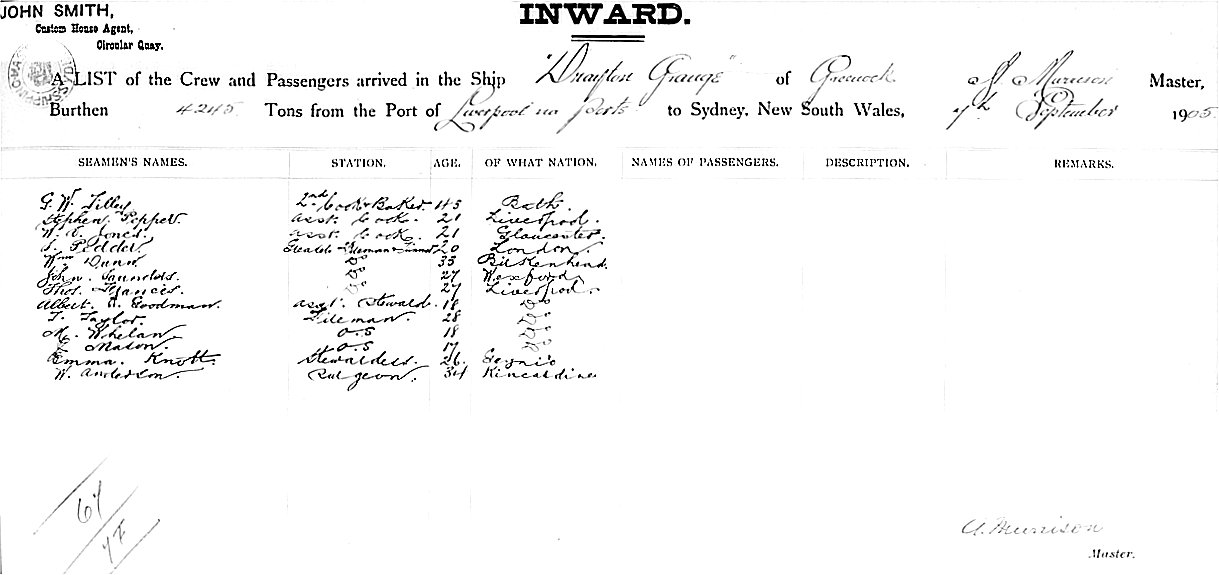 JOHN SMITH,
Custom House Agent,
Circular Quay.
INWARD.
A LIST of the Crew and Passengers arrived in the Ship "Drayton Grange" of Greenock Murison Master,
Burthen 4245 Tons from the Port of Liverpool via ports to Sydney, New South Wales, 7th September 1905
SEAMEN'S NAMES. STATION. AGE. OF WHAT NATION. NAMES OF PASSENGERS. DESCRIPTION. REMARKS.
G. W. Tilley 2nd Cook & Baker 45 Bath.
Stephen Pepper. asst. Cook. 21 Liverpool.
W. E. Jones. asst. Cook. 21 Gloucester.
Pedder 20 London.
Wm Dunn Do 33 Birkenhead.
John. Saunders. Do 27 Wexford.
Thos. Frances. Do 27 Liverpool.
Albert. Goodman. asst. Steward. 18 Do
T. Taylor. Fireman. 28 Do
M. Whelan O.S 18 Do
Mason. O.S 17 Do
Emma. Knott. Stewardess. 26.
W. Anderson. Surgeon. 34 Kincardine
64
A. Murrison
Master.